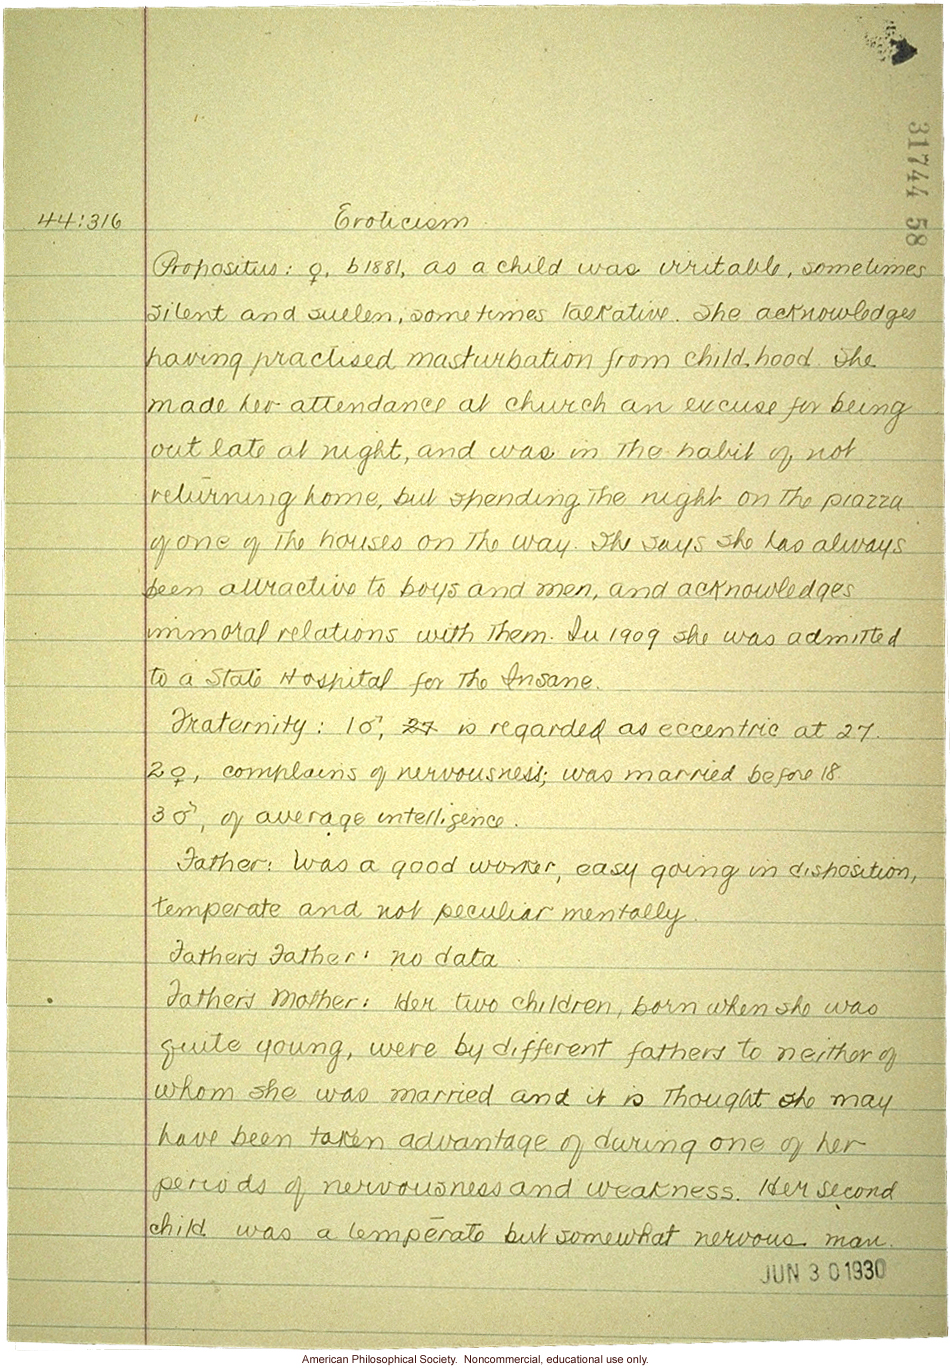 31744 58
44:316
Eroticism
Propositus: ♀, b1881, as a child was irritable, sometimes
silent and sullen, sometimes talkative. She acknowledges
having practised masturbation from child hood. She
made her attendance at church an excuse for being
out late at night, and was in the habit of not
returning home, but spending the night on the piazza
of one of the houses on the way. She says she has always
been attractive to boys and men, and acknowledges
immoral relations with them. In 1909 she was admitted
to a State Hospital for the Insane.
Fraternity: 1♂, 27 is regarded as eccentric at 27.
2♀, complains of nervousness; was married before 18
3♂, of average intelligence.
Father: Was a good worker, easy going in disposition,
temperate and not peculiar mentally.
Fathers Father: no data
Fathers Mother: Her two children, born when she was
quite young, were by different fathers to neither of
whom she was married and it is thought she may
have been taken advantage of during one of her
periods of nervousness and weakness. Her second
child was a temperate but somewhat nervous man.
JUN 30 1930
American Philosophical Society. Noncommercial, educational use only.